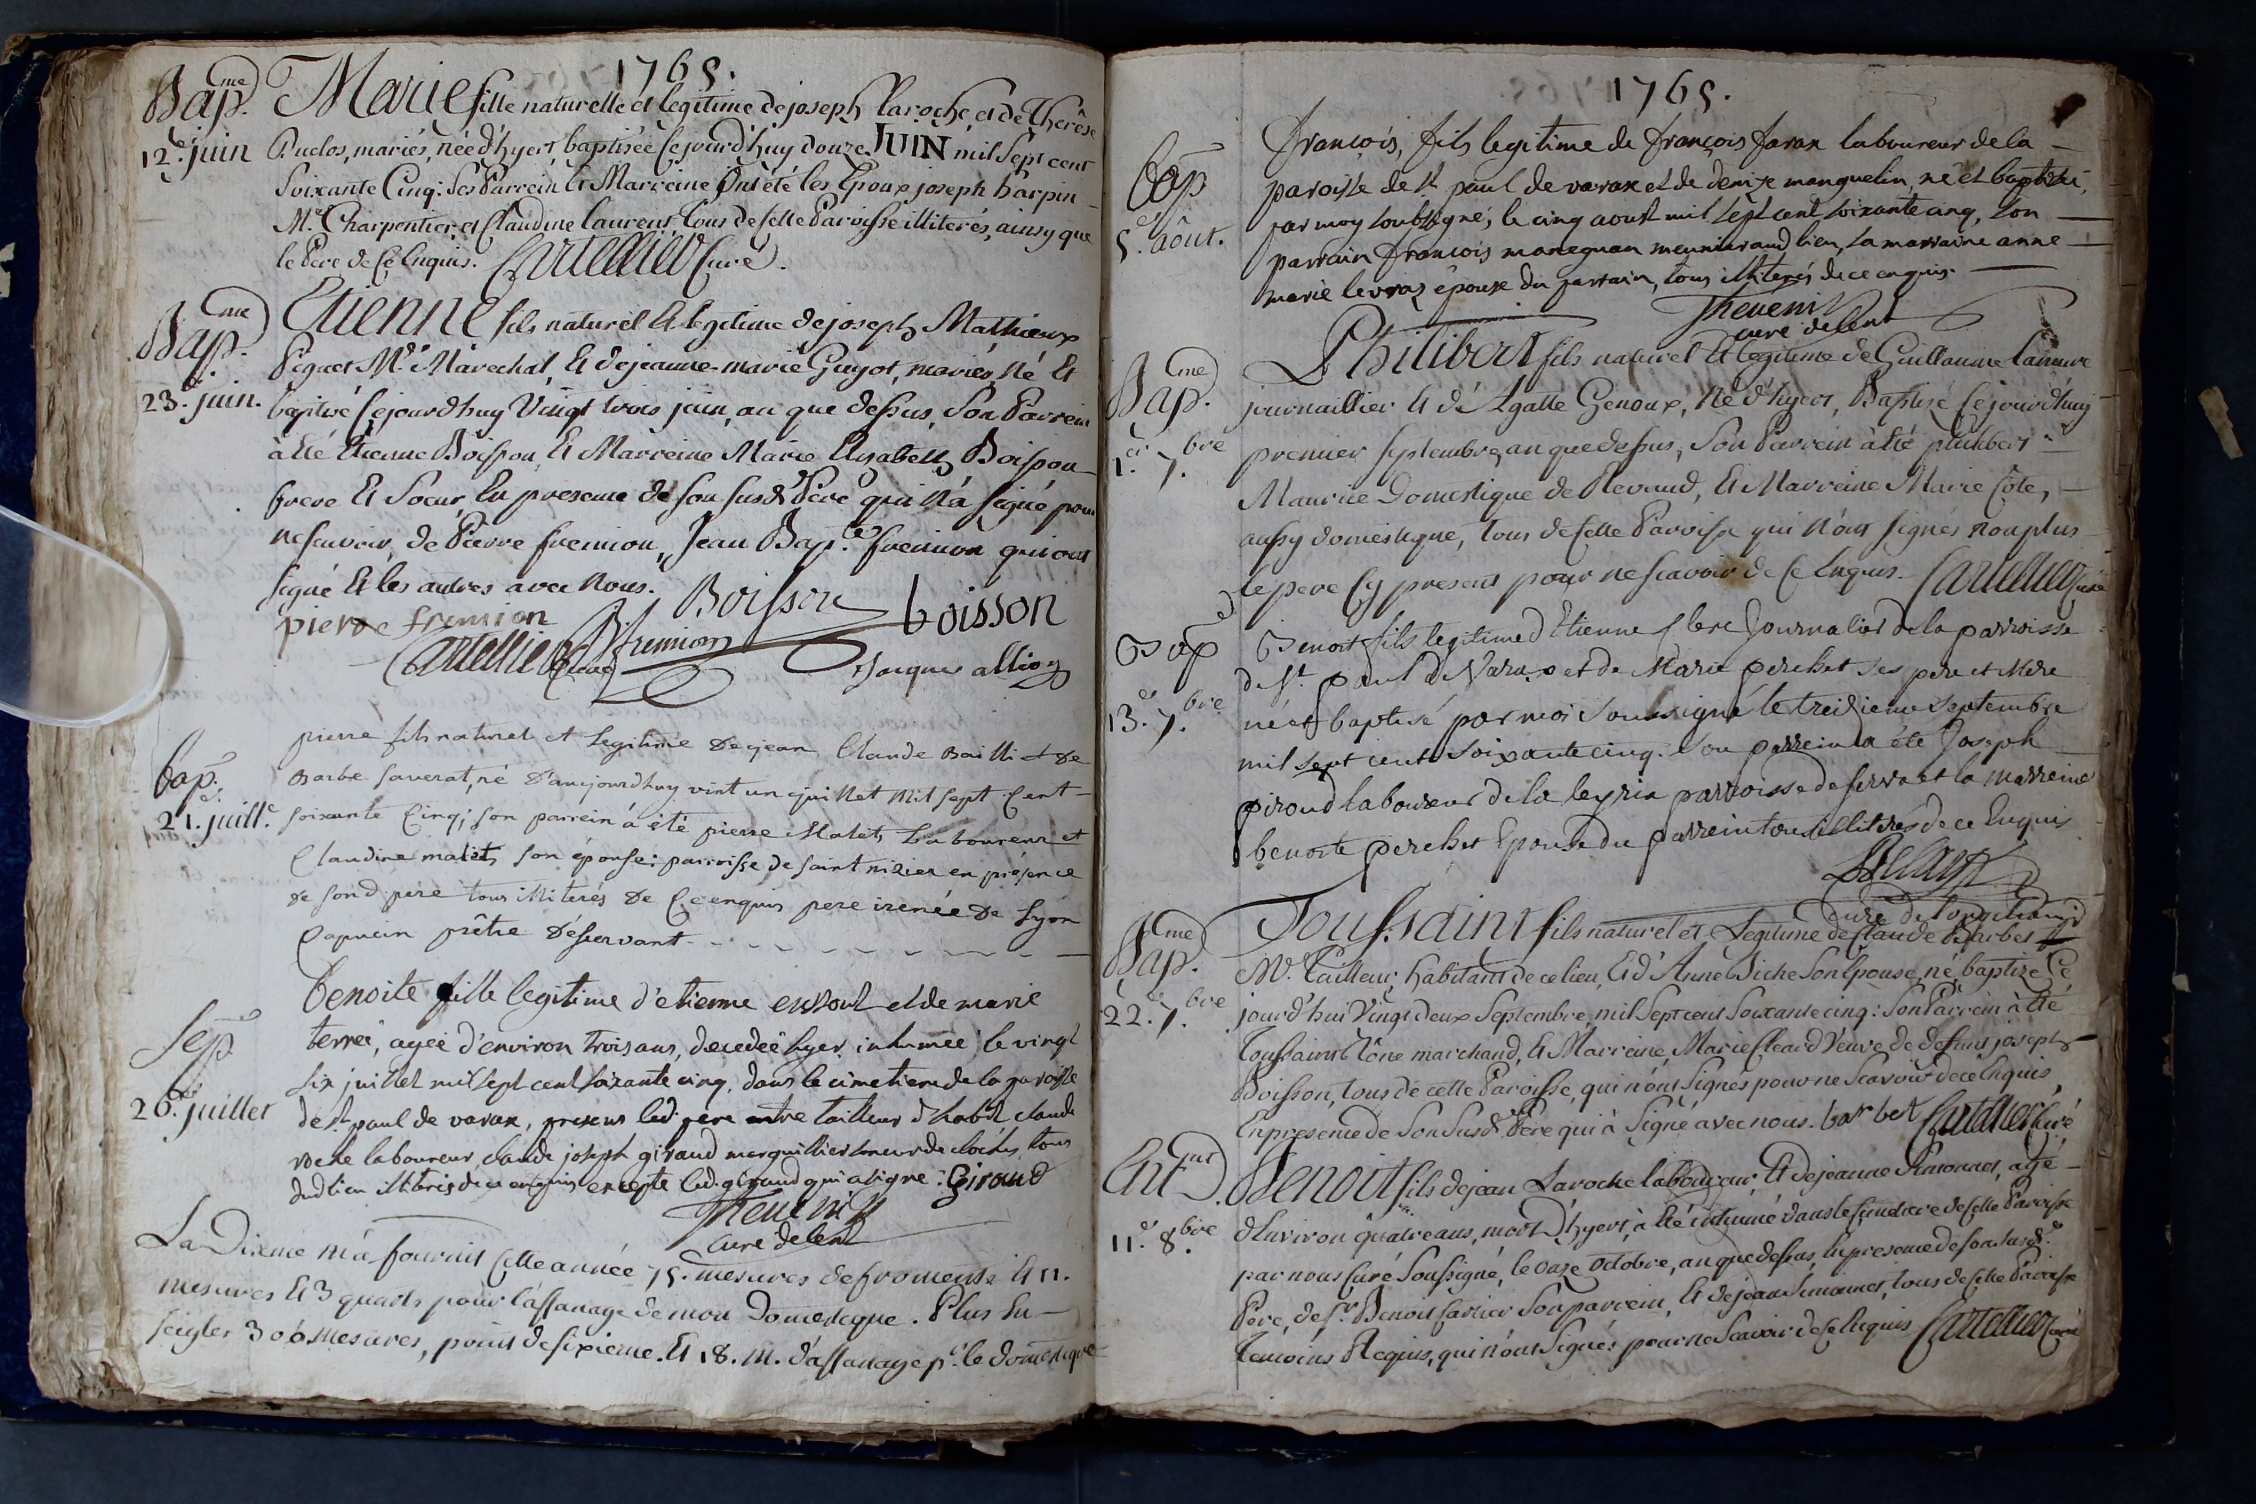 1765.
Bap.me Marie fille naturelle et legitime de joseph Laroche, et de Therêse
12.e juin Duclos, mariés, née d'hyert, baptisée Ce jourd'huy douze JUIN mil Sept cent
Soixante Cinq: Ses Parrein Et Marreine Ont été les Epoux joseph harpin
M.e Charpentier, et Claudine Laurent, tous de Cette Paroisse illiterés, ainsy que
le Pere de Ce Enquis. Cartellier Curé.
Bap.me Etienne fils naturel Et legitime de joseph Mathieux
Piquet M.e Marechal, Et de jeanne-marie Guyot, mariés, Né Et
23.e juin. baptisé Ce jourdhuy Vingt trois juin, an que dessus, Son Parrein
à été Etienne Boisson, Et Marreine Marie Elisabeth Boisson
frere Et Soeur, En presence de son susd. Pere qui n'a signé pour
ne scavoir, de Pierre fremion, Jean Bap.te fremion qui ont
signé Et les autres avec Nous.
pierre fremion Boisson boisson
Cartellier Curé B. fremion Jacques allion
bap. pierre fils naturel et legitime de jean Claude Bailli et De
21.e juill.e Barbe saverat, né D'aujourdhuy vint un juillet Mil sept Cent
soixante Cinq; son parrein á été pierre Malet, Laboureur et
Claudine malet, son épouse: parroisse de saint nizier en présence
de sond. pere tous illiterés De Ce enquis pere irenée De Lyon
Capucin prêtre Déservant
Sep. benoite fille legitime d'etienne et de marie
26.e juillet terrei, agée d'environ trois ans, decedeé hyer, inhumeé le vingt
six juillet mil sept cent soixante cinq, dans le cimetiere de la paroisse
de st. paul de varax, presens led. pere tailleur d'habit, claude
laboureur, claude joseph giraud marguillier sonneur de cloches, tous
dud. lieu illiterés de ce enquis excepté led. giraud qui a signé. Giraud
Thevenin
curé de lent
La Dixme m'a fournit Cette année 75. mesures de froment Et 11.
mesures Et 3 quarts pour l'affanage de mon Domestique. Plus En
seigles 306 mesures, point de sixieme. Et 18. m. d'affanage p.r le domestique
1765.
Bap françois, fils legitime de françois favan laboureur de la
5.e août. paroisse de st. paul de varax et de denise manguelin, né et baptisé,
par moy soubsigné, le cinq aoust mil sept cent soixante cinq, son
parrain françois meunier aud. lieu, la marraine anne
marie levraz épouse du parrain, tous illiterés de ce enquis.
Thevenin
curé de lent
Bap.me Philibert fils naturel Et legitime de Guillaume
journaillier Et d'Agatte Genoux, Né d'hyert, Baptisé Ce jourd'huy
1.er 7.bre premier Septembre, an que dessus, Son Parrein à été philibert
Maurice Domestique de Revaud, Et Marreine Marie Cote,
aussy domestique, tous de Cette Paroisse qui N'ont signés non plus
le pere Cy present pour ne scavoir de Ce Enquis. Cartellier Curé
Bap Benoit fils legitime d'Etienne Journalier de la parroisse
de St. paul de Varax et de Marie perchet ses pere et Mere
13.e 7.bre né et baptisé par moi soussigné le treizieme septembre
mil sept cent soixante cinq. son parrein a été Joseph
piroud laboureur de la leyria parroisse de servas et la marreine
benoite perchet Epouse du parrein tous illiterés de ce Enquis
curé de longchamp
Bap.me Toussaint fils naturel et Legitime de Claude Barbet
M.e Tailleur, habitant de ce lieu, Et d'Anne Siche Son Epouse, né, baptizé Ce
22.e 7.bre jourd'hui Vingt deux Septembre, mil Sept cent Soixante cinq: Son Parrein à été
Toussaint Cône marchand, Et Marreine, Marie Cleard Veuve de defunt joseph
Boisson, tous de cette Paroisse, qui n'ont Signés pour ne Scavoir de ce Enquis,
En presence de Son Susd. Pere qui à Signé avec nous. barbet Cartellier Curé
Ent.mt Benoit fils de jean Laroche laboureur, Et de jeanne Simonnet, agé
d'Environ quatre ans, mort d'hyert, à été inhumé dans le Cimetiere de Cette Paroisse
11.e 8.bre par nous Curé Soussigné, le onze Octobre, an que dessus, En presence de son Susd.
Pere, de S.r Benoit Carrier Son parrein, Et de jean Simonnet, tous de Cette Paroisse
Temoins Requis, qui n'ont Signés pour ne Scavoir de Ce Enquis Cartellier Curé